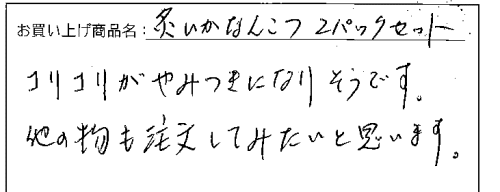 お買い上げ商品名：炙いかなんこつ 2パックセット
コリコリがやみつきになりそうです。
他の物も注文してみたいと思います。